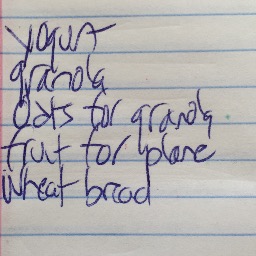 yogurt
granola
Oats for granola
fruit for plane
wheat bread